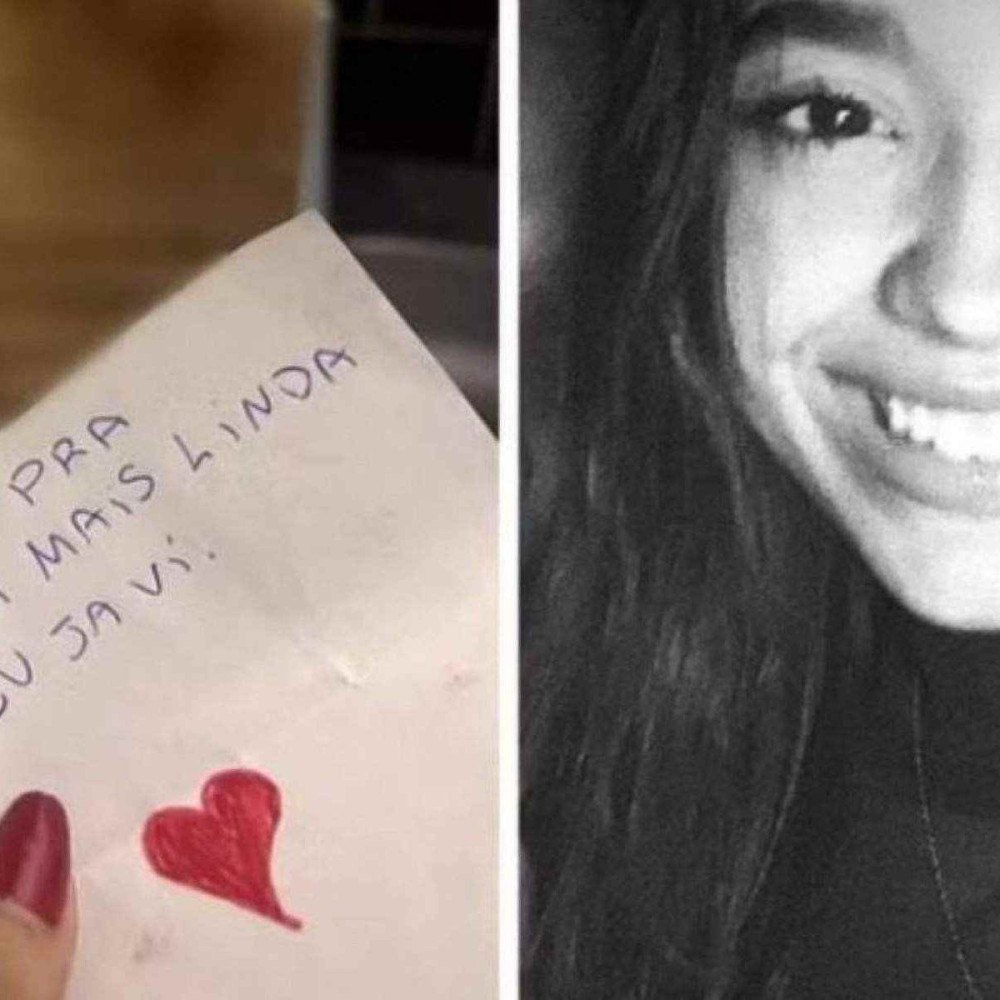 PRA
MAiS LiNDA
JA Vi.